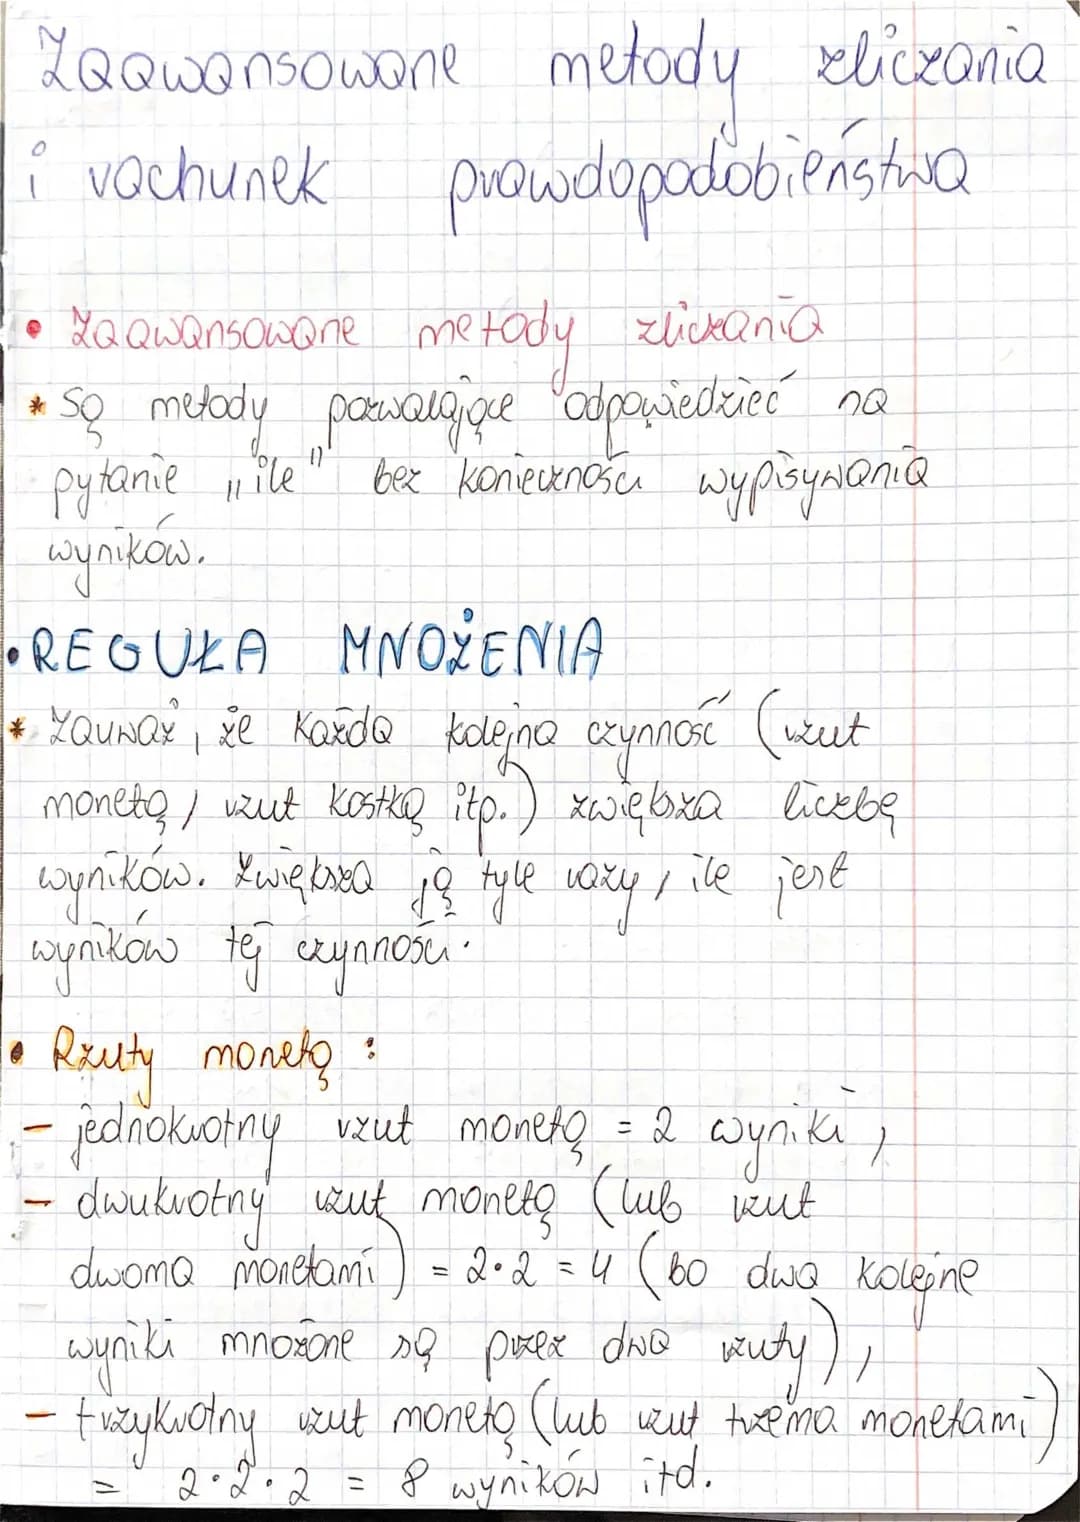 Zaawansowane metody zliczania
i rachunek prawdopodobieństwa
• Zaawansowane metody zliczania
* Są metody pozwalające odpowiedzieć na
pytanie „ile" bez konieczności wypisywania
wyników.
• REGUŁA MNOŻENIA
* Zauważ, że każda kolejna czynność (rzut
monetą, rzut kostką itp.) zwiększa liczbę
wyników. Zwiększa ją tyle razy, ile jest
wyników tej czynności.
• Rzuty monetą :
- jednokrotny rzut monetą = 2 wyniki,
- dwukrotny rzut monetą (lub rzut
dwoma monetami) = 2·2 = 4 (bo dwa kolejne
wyniki mnożone są przez dwa rzuty),
- trzykrotny rzut monetą (lub rzut trzema monetami)
= 2·2·2 = 8 wyników itd.